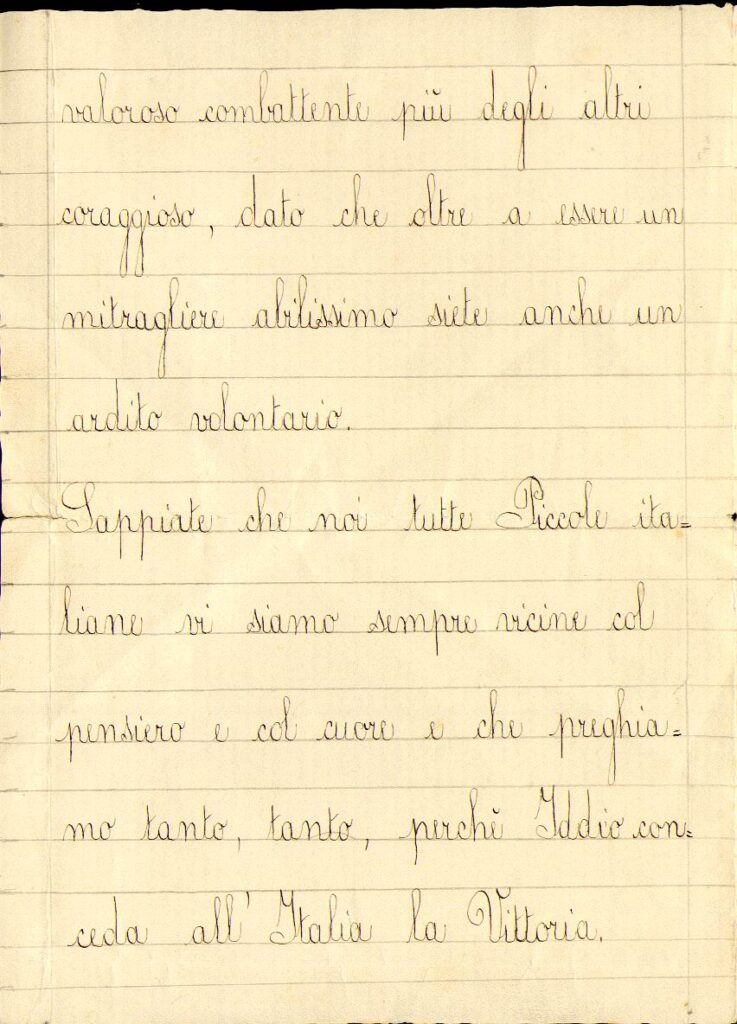 valoroso combattente più degli altri
coraggioso, dato che oltre a essere un
mitragliere abilissimo siete anche un
ardito volontario.
Sappiate che noi tutte Piccole ita=
liane vi siamo sempre vicine col
pensiero e col cuore e che preghia=
mo tanto, tanto, perchè Iddio con=
ceda all' Italia la Vittoria.